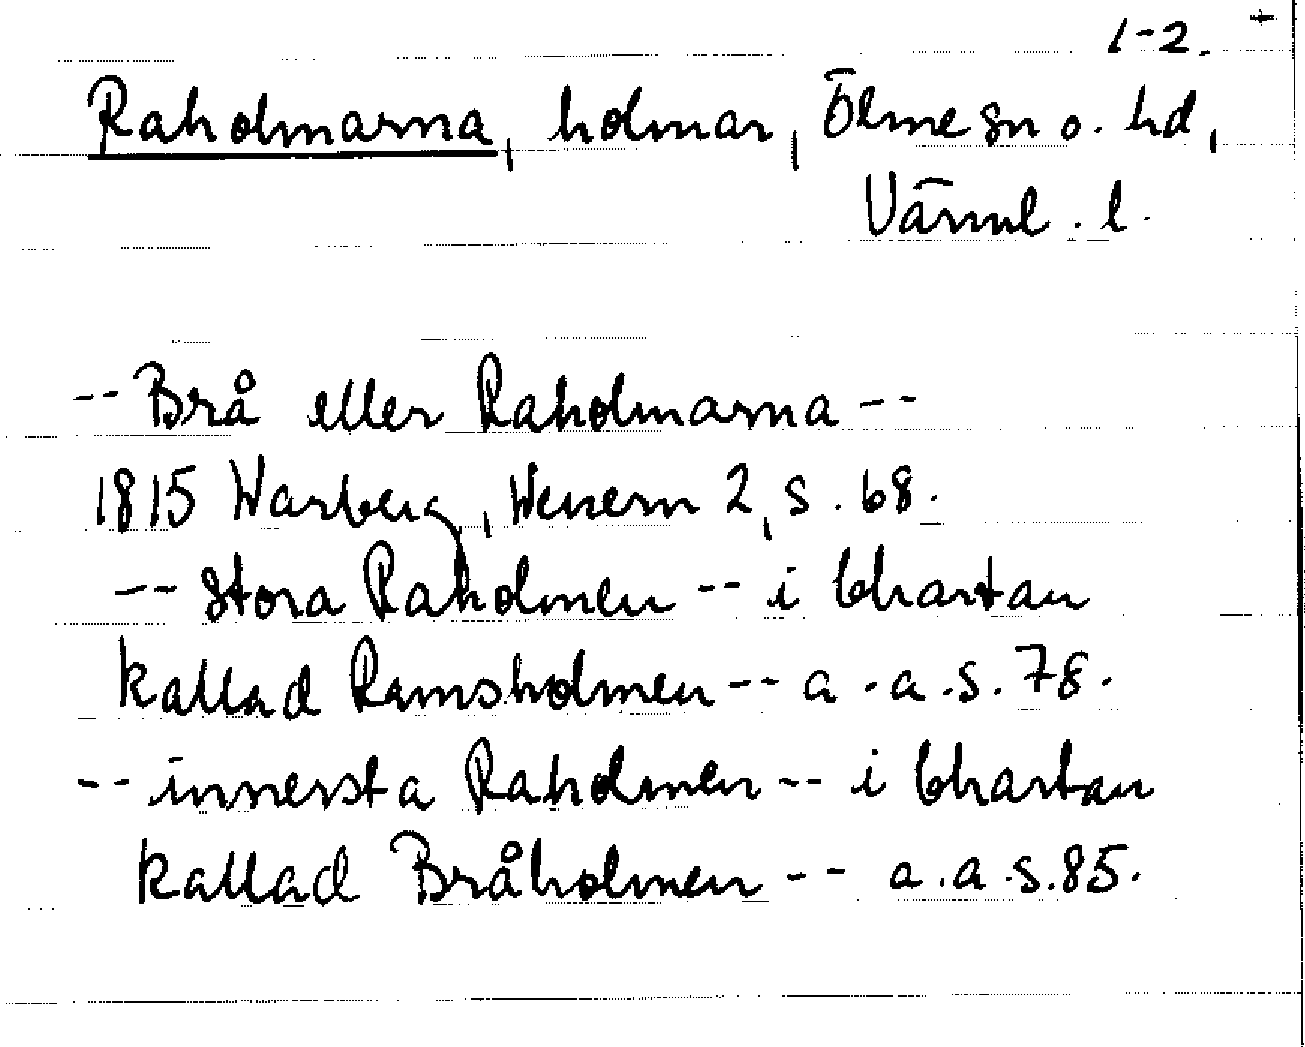 1-2. +
Raholmarna, holmar, Ölme sn o. hd,
Värml. l.
-- Brå eller Raholmarna --
1815 Warberg, Wenern 2, s. 68.
-- stora Raholmen -- i Chartan
kallad Ramsholmen -- a.a.s. 78.
-- innersta Raholmen -- i Chartan
kallad Bråholmen -- a.a.s. 85.